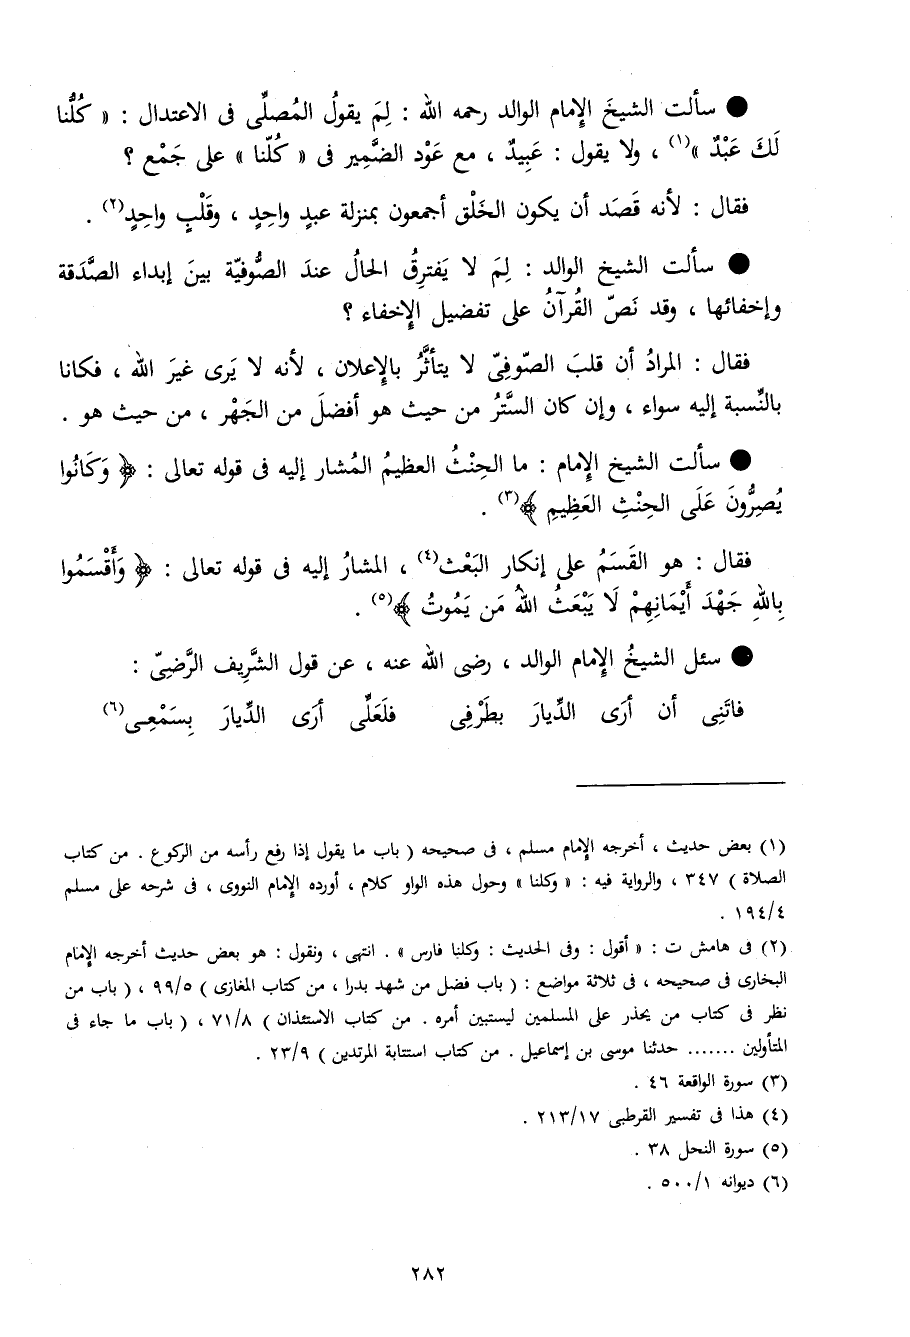 ● سألت الشيخَ الإمام الوالد رحمه الله : لِمَ يقولُ المُصلِّى فى الاعتدال : « كُلُّنا
لَكَ عَبْدٌ »(١) ، ولا يقول : عَبِيدٌ ، مع عَوْد الضَّمِير فى « كُلّنا » على جَمْع ؟
فقال : لأنه قَصَد أن يكون الخَلْق أجمعون بمنزلة عبدٍ واحِدٍ ، وقَلْبٍ واحِدٍ(٢) .
● سألت الشيخ الوالد : لِمَ لا يَفترِقُ الحالُ عندَ الصُّوفيّة بينَ إبداء الصَّدَقة
وإخفائها ، وقد نَصّ القُرآنُ على تفضيل الإِخفاء ؟
فقال : المرادُ أن قلبَ الصّوفىّ لا يتأثَّرُ بالإِعلان ، لأنه لا يَرى غيرَ الله ، فكانا
بالنِّسبة إليه سواء ، وإن كان السَّتْرُ من حيث هو أفضلَ من الجَهْر ، من حيث هو .
● سألت الشيخ الإِمام : ما الحِنْثُ العظيمُ المُشار إليه فى قوله تعالى : ﴿ وَكَانُوا
يُصِرُّونَ عَلَى الحِنْثِ العَظِيمِ ﴾(٣) .
فقال : هو القَسَمُ على إنكار البَعْث(٤) ، المشارُ إليه فى قوله تعالى : ﴿ وَأَقْسَمُوا
بِاللهِ جَهْدَ أَيْمَانِهِمْ لَا يَبْعَثُ اللهُ مَن يَمُوتُ ﴾(٥) .
● سئل الشيخُ الإِمام الوالد ، رضى الله عنه ، عن قول الشَّرِيف الرَّضِىّ :
فاتَنِى أن أرَى الدِّيارَ بطَرْفِى فلَعَلِّى أرَى الدِّيارَ بِسَمْعِـى(٦)
(١) بعض حديث ، أخرجه الإمام مسلم ، فى صحيحه ( باب ما يقول إذا رفع رأسه من الركوع . من كتاب
الصلاة ) ٣٤٧ ، والرواية فيه : « وكلنا » وحول هذه الواو كلام ، أورده الإمام النووى ، فى شرحه على مسلم
١٩٤/٤ .
(٢) فى هامش ت : « أقول : وفى الحديث : وكلنا فارس » . انتهى ، ونقول : هو بعض حديث أخرجه الإمام
البخارى فى صحيحه ، فى ثلاثة مواضع : ( باب فضل من شهد بدرا ، من كتاب المغازى ) ٩٩/٥ ، ( باب من
نظر فى كتاب من يحذر على المسلمين ليستبين أمره . من كتاب الاستئذان ) ٧١/٨ ، ( باب ما جاء فى
المتأولين ....... حدثنا موسى بن إسماعيل . من كتاب استتابة المرتدين ) ٢٣/٩ .
(٣) سورة الواقعة ٤٦ .
(٤) هذا فى تفسير القرطبى ٢١٣/١٧ .
(٥) سورة النحل ٣٨ .
(٦) ديوانه ٥٠٠/١ .
٢٨٢